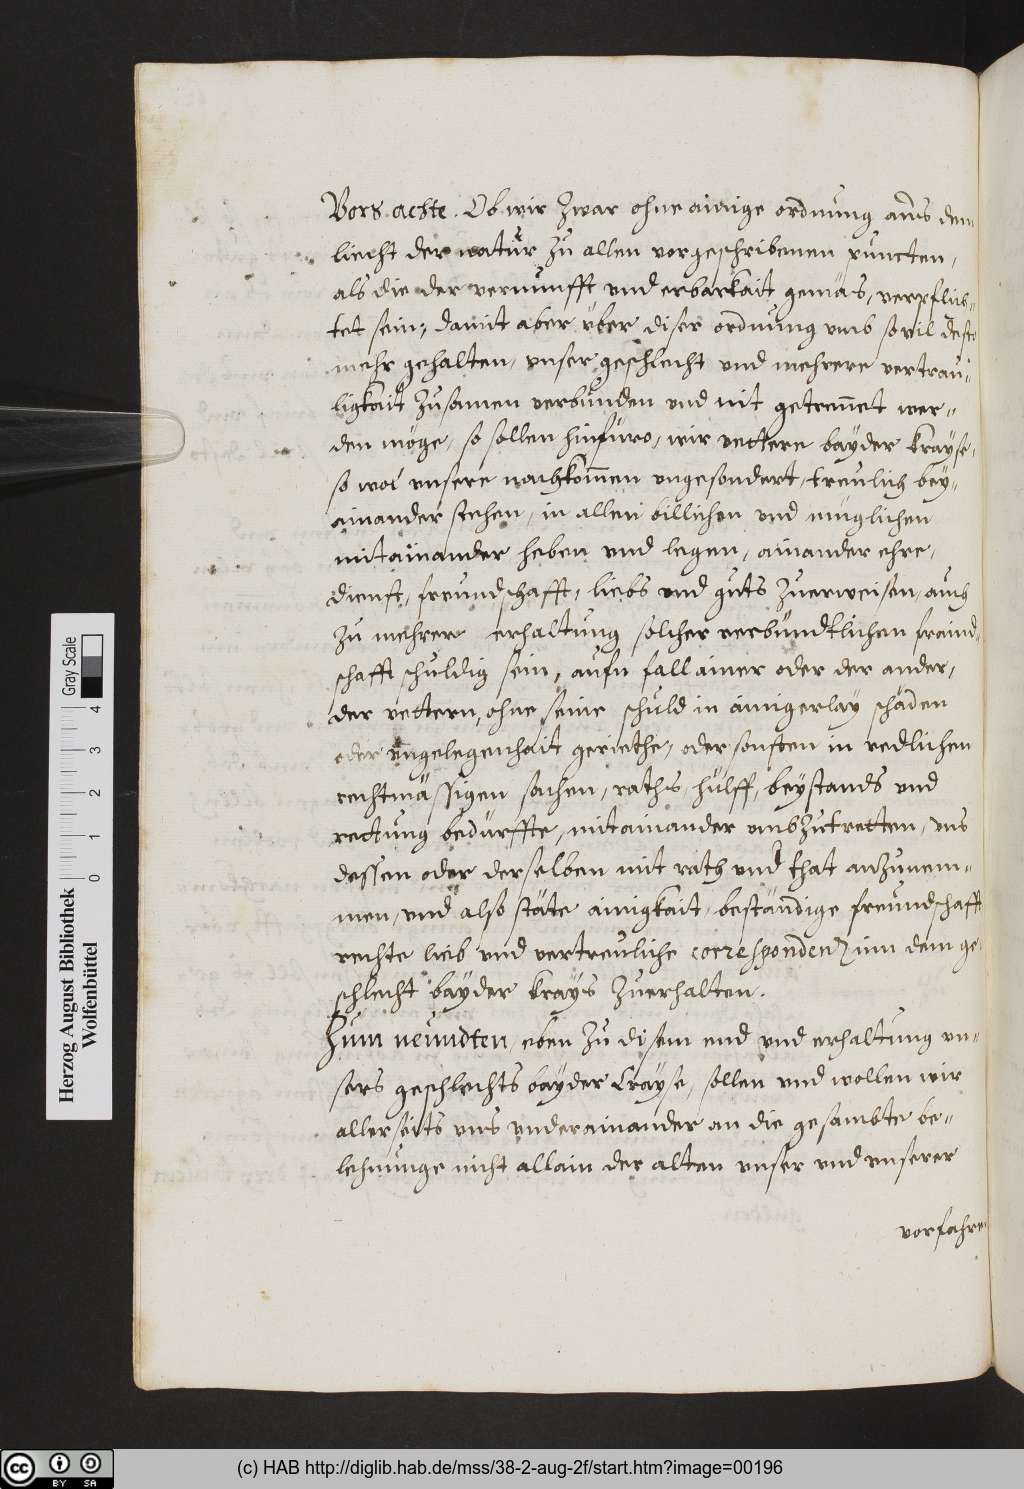 Vors achte. Ob wir zwar ohne ainige ordnung aus dem
liecht der natur zu allen vorgeschribenen puncten,
als die der vernunfft und erbarkait gemäs, verpflich-
tet sein, damit aber über diser ordnung umb sovil desto
mehr gehalten, unser geschlecht und mehrere vertrau-
ligkait zusamen verbunden und nit getrennet wer-
den möge, so sollen hinfüro, wir vettere bayder krayse,
so wol unsere nachkommen ungesondert, treulich bey-
ainander stehen, in allen billichen und müglichen
mitainander heben und legen, ainander ehre,
dienst, freundschafft, liebs und guts zuerweisen, auch
zu mehrer erhaltung solcher verbündtlichen fraind-
schafft schuldig sein, aufn fall ainer oder der ander,
der vettern, ohne seine schuld in ainigerlay schäden
oder ungelegenhait geriethe, oder sonsten in redlichen
rechtmässigen sachen, raths, hülff, beystands und
rettung bedürffte, mitainander umbzutretten, uns
dessen oder derselben mit rath und that anzunem-
men, und also stäte ainigkait, beständige freundschafft
rechte lieb und vertreuliche correspondenz inn dem ge-
schlecht bayder krays zuerhalten.
Zum neundten, eben zu disem end und erhaltung un-
sers geschlechts bayder Crayse, sollen und wollen wir
allerseits uns underainander an die gesambte be-
lehnunge nicht allain der alten unser und unserer
vorfahre
Herzog August Bibliothek
Wolfenbüttel
0 1 2 3 4
Gray Scale
cc BY SA
(c) HAB http://diglib.hab.de/mss/38-2-aug-2f/start.htm?image=00196